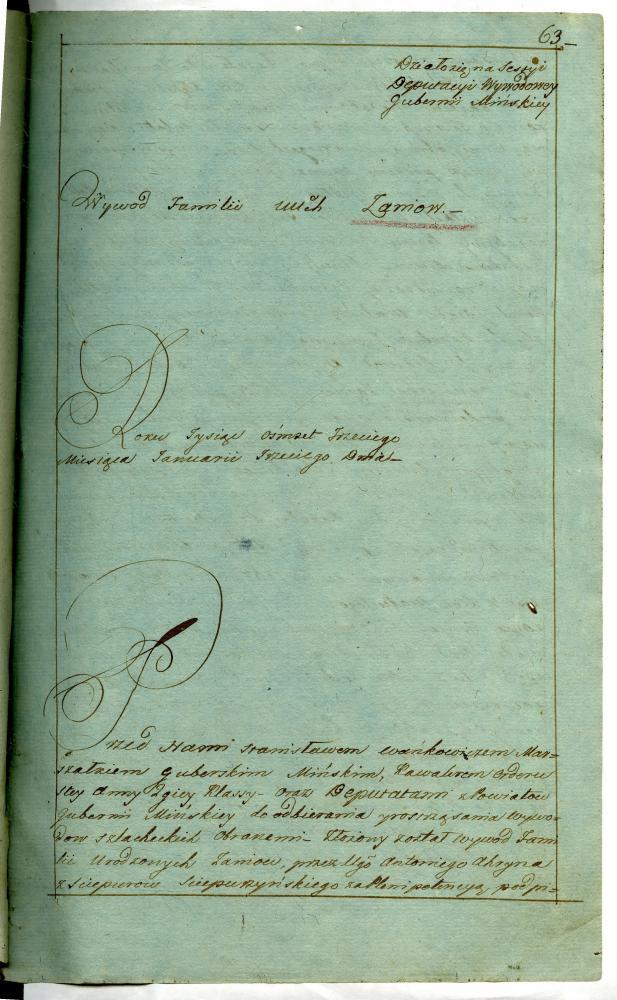 63
Działo się na Sessyi
Deputacyi Wywodowey
Gubernii Mińskiey
Wywod Familii Zaniow.—
Roku Tysiąc Ośmset Trzeciego
Miesiąca Januarii Trzeciego Dnia—
Przed Nami Stanisławem Wańkowiczem Mar=
szałkiem Guberskim Mińskim, Kawalerem Orderu
Stey Anny 2giey Klassy— oraz Deputatami z Powiatów
Gubernii Mińskiey do odbierania y rostrząsania Wywo=
dow szlacheckich Obranemi— złożony został Wywod Fami
lii Urodzonych Zaniow, przez Antoniego
z Sciepurow Sciepurzyńskiego za Plenipotencyą podpi=